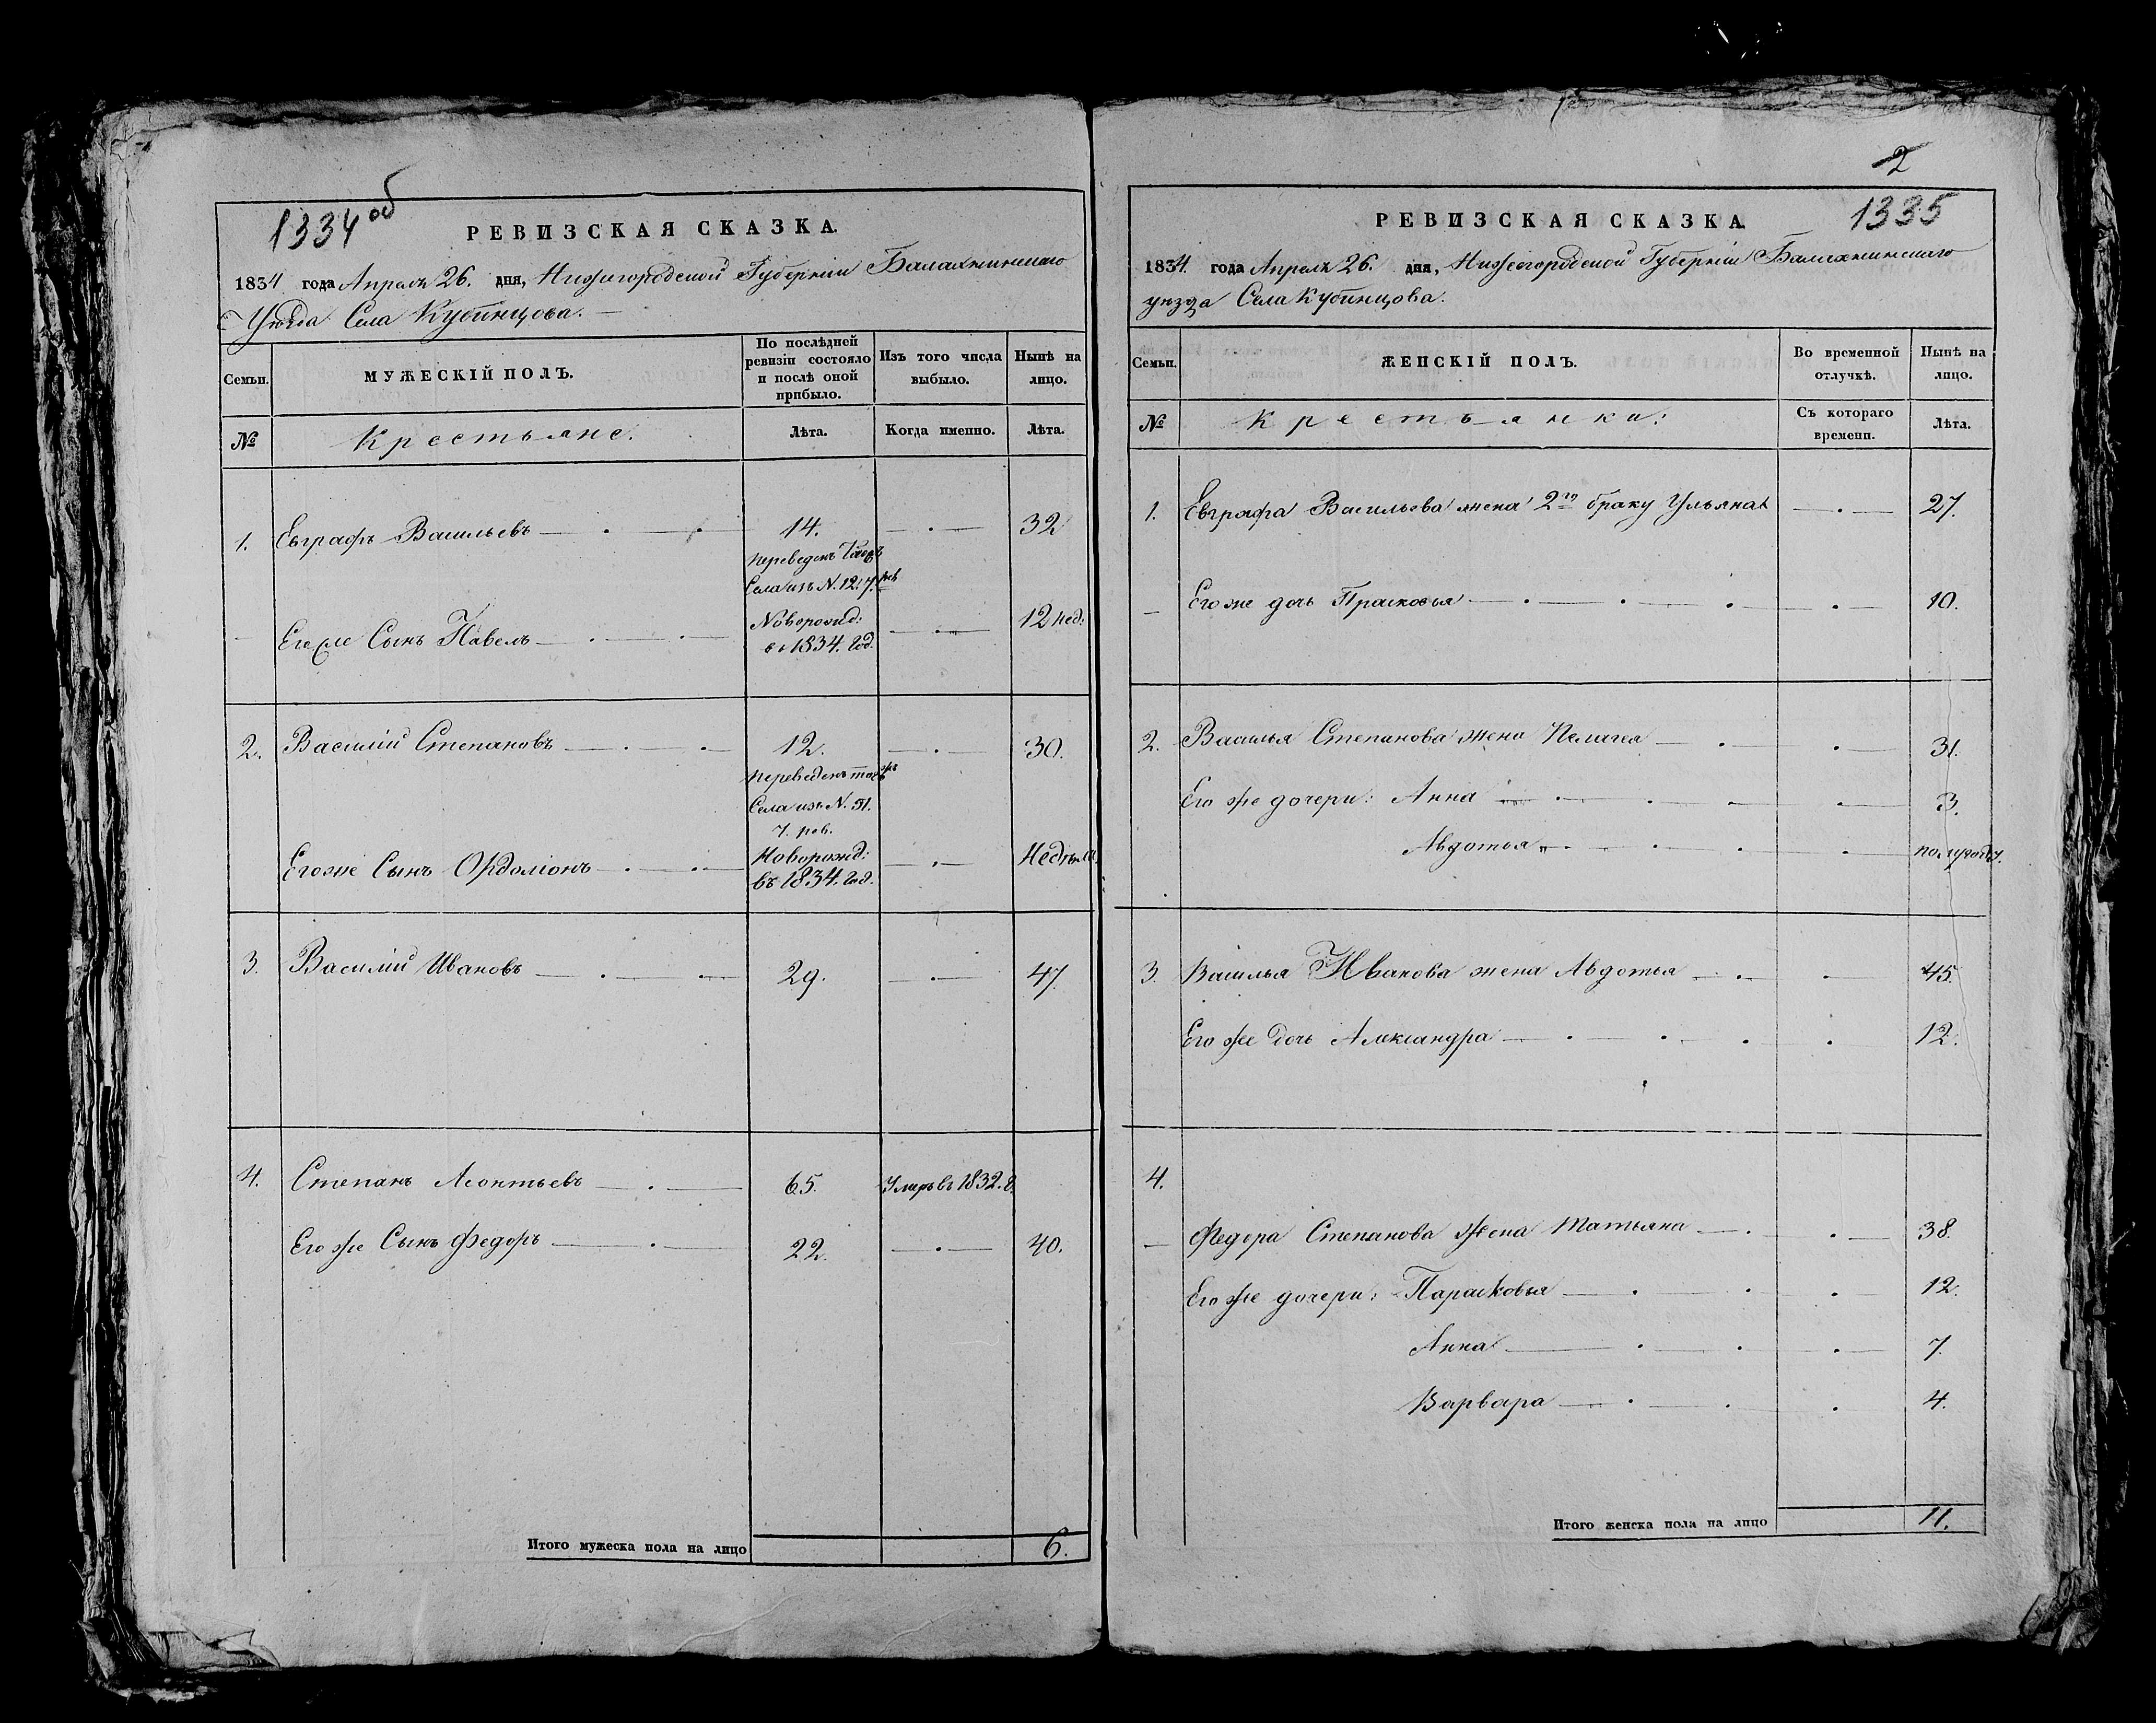 1334 об
РЕВИЗСКАЯ СКАЗКА.
1834 года Апреля 26. дня, Нижегородской Губерніи Балахнинскаго
Уѣзда Села Кубинцова.
Семьи.
МУЖЕСКІЙ ПОЛЪ.
По послѣдней
ревизіи состояло
и послѣ оной
прибыло.
Изъ того числа
выбыло.
Нынѣ на
лицо.
№
Крестьяне.
Лѣта.
Когда именно.
Лѣта.
1. Евграфъ Васильевъ 14. 32
переведенъ
Села изъ N. 12. 7. рев
Его же Сынъ Павелъ Новорожд: 12 нед:
въ 1834. год.
2. Василій Степановъ 12. 30.
переведенъ тогожъ
Села изъ N. 51.
7. рев.
Его же Сынъ Ордаліонъ Новорожд: Недѣля
въ 1834. год.
3. Василій Ивановъ 29. 47.
4. Степанъ Леонтьевъ 65. Умеръ въ 1832. г.
Его же Сынъ Федоръ 22. 40.
Итого мужеска пола на лицо 6.
2
РЕВИЗСКАЯ СКАЗКА. 1335
1834. года Апреля 26. дня, Нижегородской Губерніи Балахнинскаго
уезда Села Кубинцова.
Семьи.
ЖЕНСКІЙ ПОЛЪ.
Во временной
отлучкѣ.
Нынѣ на
лицо.
№
Крестьянки:
Съ котораго
времени.
Лѣта.
1. Евграфа Васильева жена 2го браку Ульяна 27.
Его же дочь Прасковья 10.
2. Василья Степанова жена Пелагея 31.
Его же дочери: Анна 3.
Авдотья полугоду.
3. Василья Иванова жена Авдотья 45.
Его же дочь Александра 12.
4.
Федора Степанова жена Татьяна 38.
Его же дочери: Парасковья 12.
Анна 7.
Варвара 4.
Итого женска пола на лицо 11.